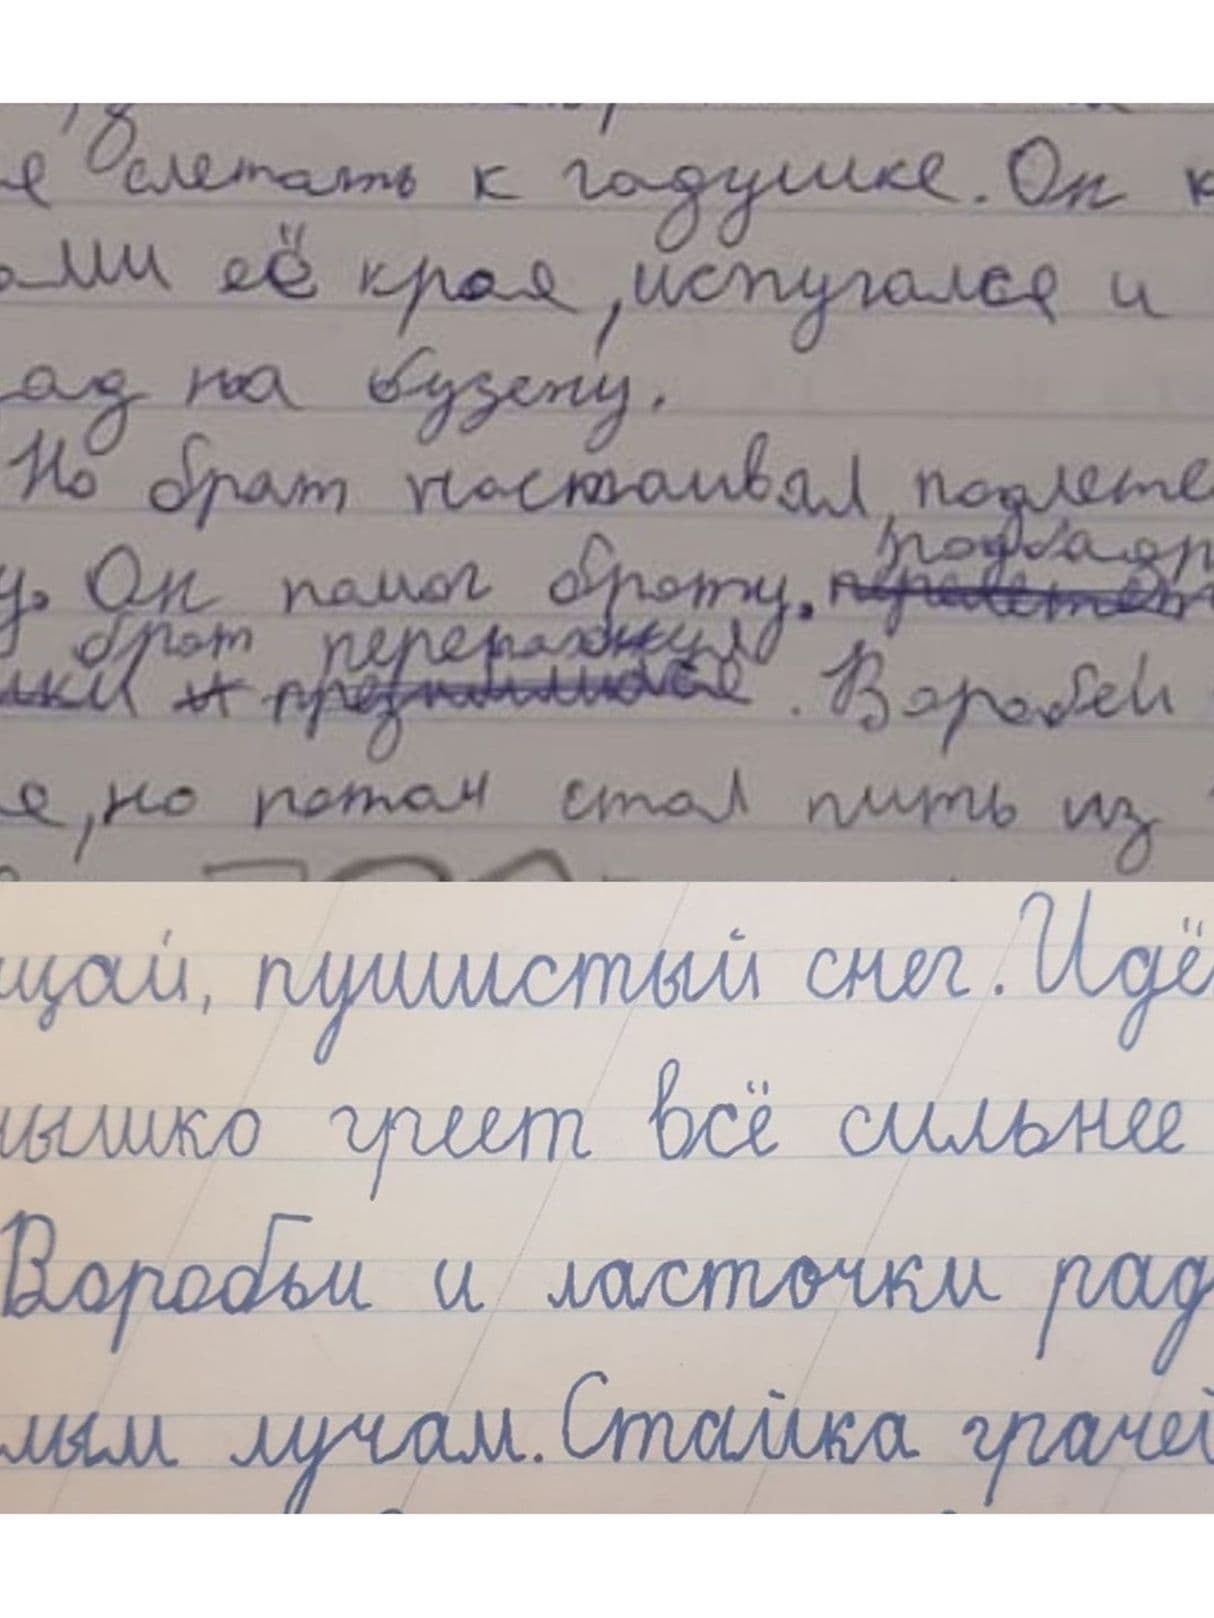 е слетать к гадушке. Он к
ами её края, испугался и
ад на бузену.
Но брат настаивал, подлете
у. Он помог брату.
брат перемахнул
. Воробей
е, но потом стал пить из
щай, пушистый снег. Идё
нышко греет всё сильнее
Воробьи и ласточки рад
лым лучам. Стайка грачей